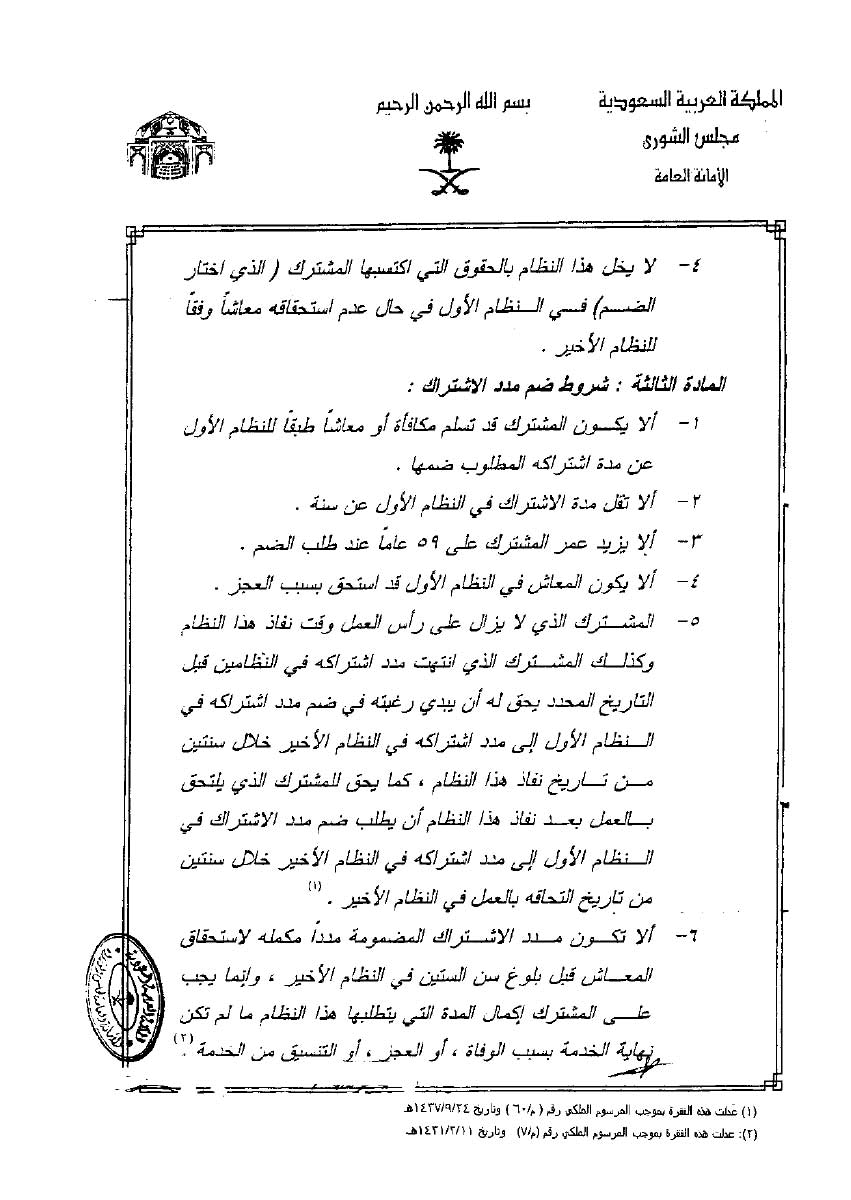 المملكة العربية السعودية
بسم الله الرحمن الرحيم
مجلس الشورى
الأمانة العامة
٤- لا يخل هذا النظام بالحقوق التي اكتسبها المشترك ( الذي اختار
الضم) في النظام الأول في حال عدم استحقاقه معاشاً وفقاً
للنظام الأخير .
المادة الثالثة : شروط ضم مدد الاشتراك :
١- ألا يكون المشترك قد تسلم مكافأة أو معاشاً طبقاً للنظام الأول
عن مدة اشتراكه المطلوب ضمها .
٢- ألا تقل مدة الاشتراك في النظام الأول عن سنة .
٣- ألا يزيد عمر المشترك على ٥٩ عاماً عند طلب الضم .
٤- ألا يكون المعاش في النظام الأول قد استحق بسبب العجز .
٥- المشترك الذي لا يزال على رأس العمل وقت نفاذ هذا النظام
وكذلك المشترك الذي انتهت مدد اشتراكه في النظامين قبل
التاريخ المحدد يحق له أن يبدي رغبته في ضم مدد اشتراكه في
النظام الأول إلى مدد اشتراكه في النظام الأخير خلال سنتين
من تاريخ نفاذ هذا النظام ، كما يحق للمشترك الذي يلتحق
بالعمل بعد نفاذ هذا النظام أن يطلب ضم مدد الاشتراك في
النظام الأول إلى مدد اشتراكه في النظام الأخير خلال سنتين
من تاريخ التحاقه بالعمل في النظام الأخير . (١)
٦- ألا تكون مدد الاشتراك المضمومة مدداً مكمله لاستحقاق
المعاش قبل بلوغ سن الستين في النظام الأخير ، وإنما يجب
على المشترك إكمال المدة التي يتطلبها هذا النظام ما لم تكن
نهاية الخدمة بسبب الوفاة ، أو العجز ، أو التنسيق من الخدمة . (٢)
(١) عدلت هذه الفقرة بموجب المرسوم الملكي رقم ( م/٦٠ ) وتاريخ ١٤٣٧/٩/٢٤هـ
(٢): عدلت هذه الفقرة بموجب المرسوم الملكي رقم (م/٧) وتاريخ ١٤٣١/٣/١١هـ